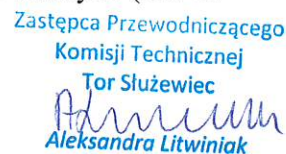 Zastępca Przewodniczącego
Komisji Technicznej
Tor Służewiec
Aleksandra Litwiniak